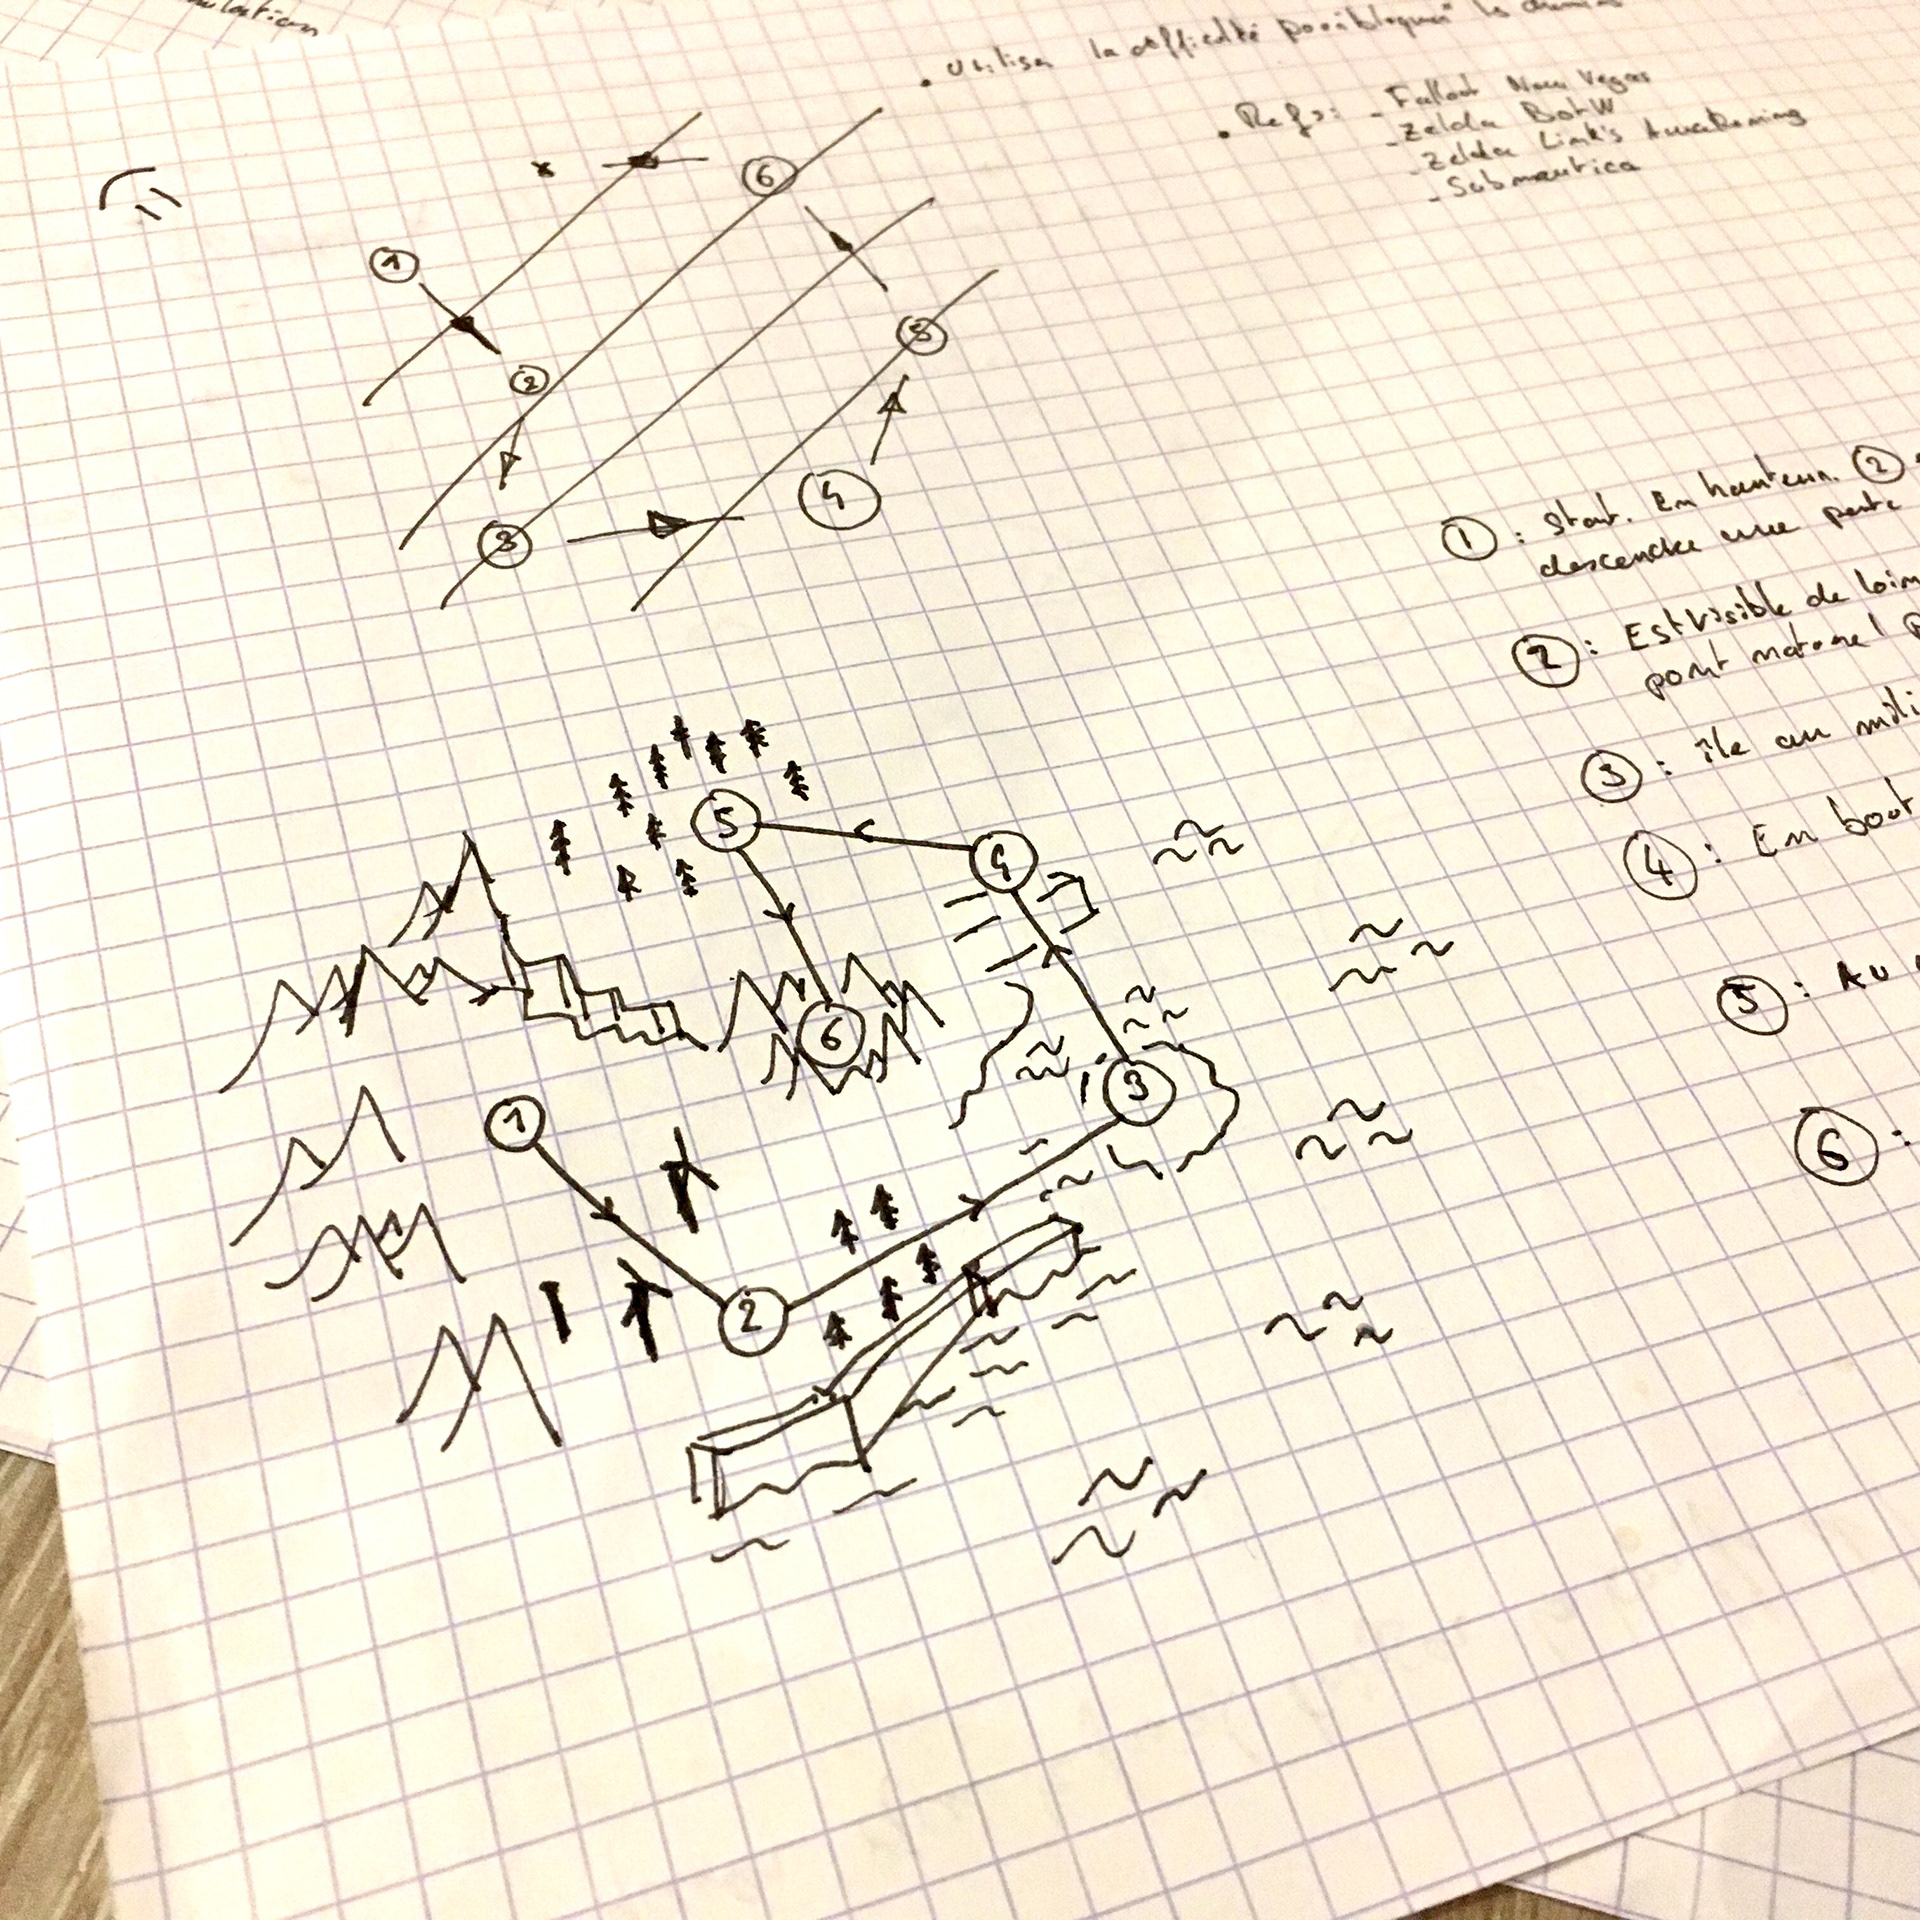 • Utiliser la difficulté pour bloquer" les chemins
• Refs: - Fallout New Vegas
- Zelda BotW
- Zelda Link's Awakening
- Subnautica
1
6
2
5
3
4
① : Start. En hauteur. ②
descendre une pente
② : Est visible de loin
pont naturel
③ : île au mili
④ : En boat
⑤ : Au
⑥ :
5
4
6
3
1
2